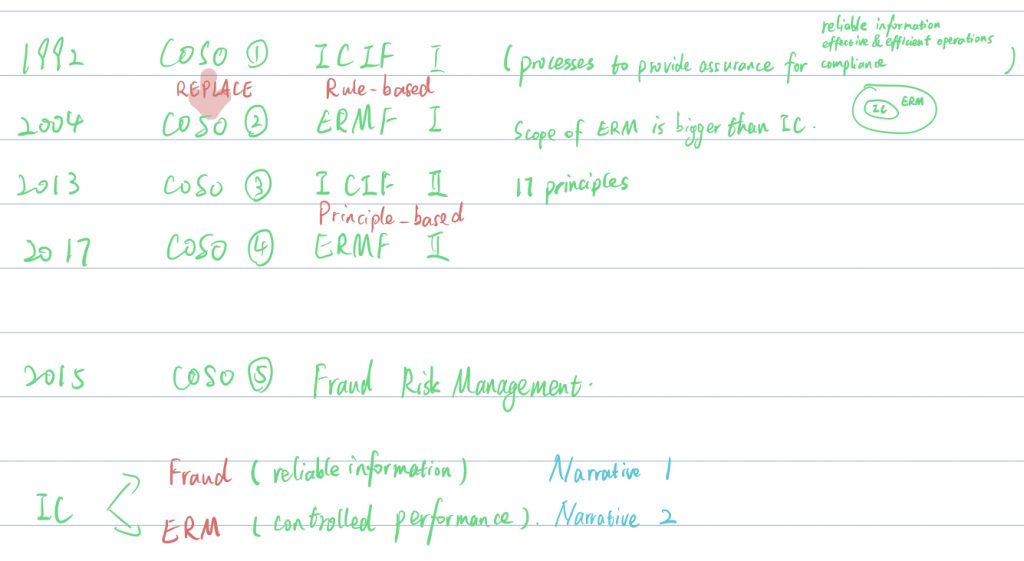 1992 COSO ① ICIF I (processes to provide assurance for reliable information
effective & efficient operations
compliance )
REPLACE Rule-based
2004 COSO ② ERMF I Scope of ERM is bigger than IC. IC ERM
2013 COSO ③ ICIF II 17 principles
Principle-based
2017 COSO ④ ERMF II
2015 COSO ⑤ Fraud Risk Management.
IC
Fraud (reliable information) Narrative 1
ERM (controlled performance). Narrative 2